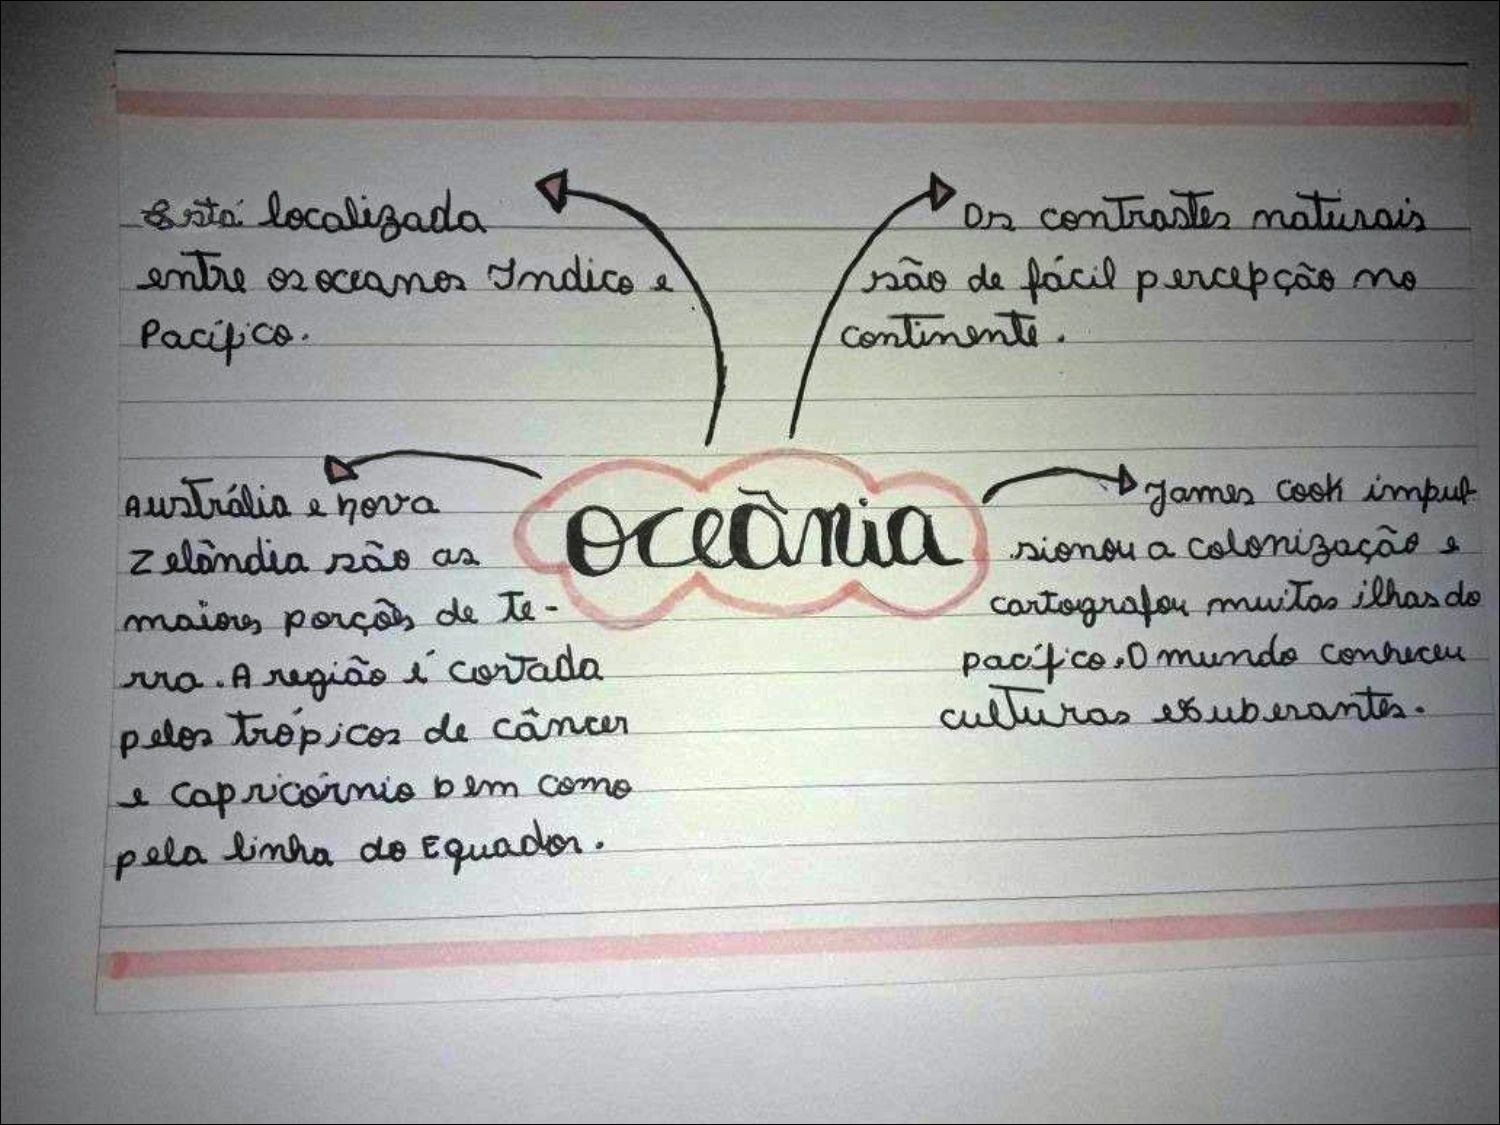 Está localizada
entre os oceanos Indico e
Pacífico.
Os contrastes naturais
são de fácil percepção no
continente.
Austrália e nova
Zelândia são as
maiores porções de te-
rra. A região é cortada
pelos trópicos de câncer
e capricórnio bem como
pela linha do Equador.
oceânia
James Cook impul-
sionou a colonização e
cartografou muitas ilhas do
pacífico. O mundo conheceu
culturas exuberantes.